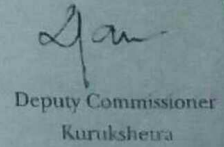 Deputy Commissioner
Kurukshetra